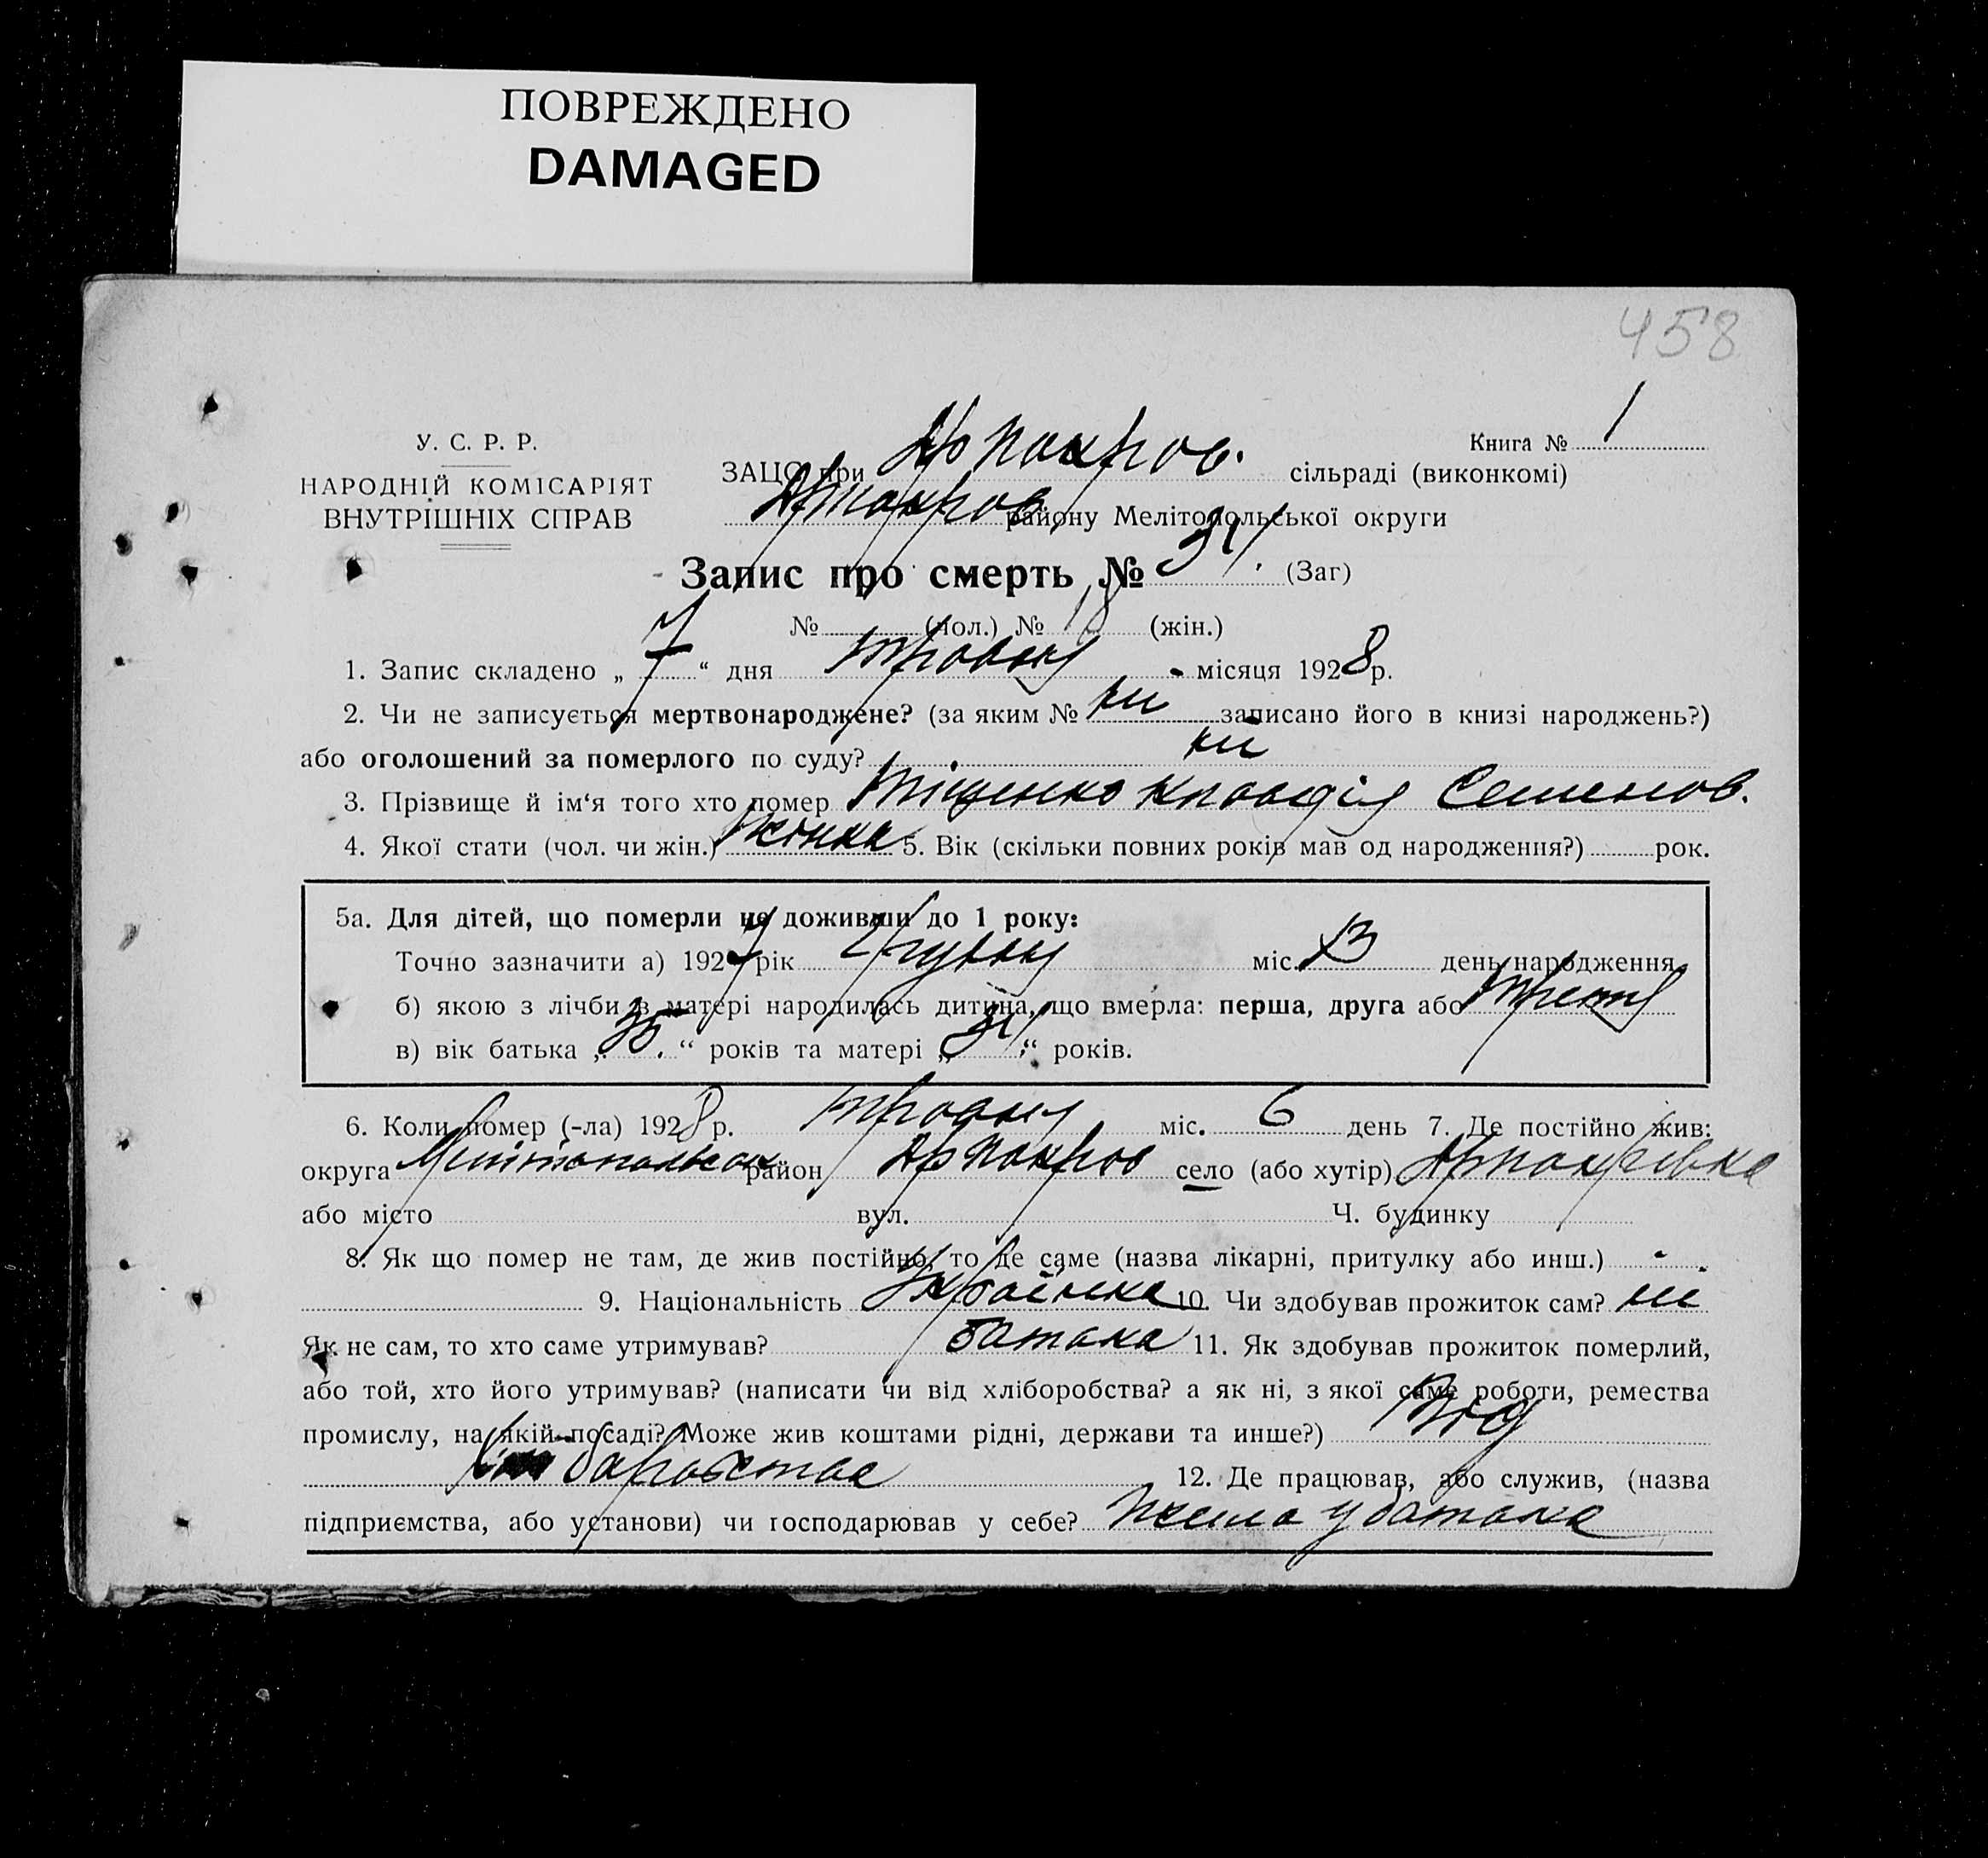 ПОВРЕЖДЕНО
DAMAGED
458
У. С. Р. Р.
НАРОДНІЙ КОМІСАРІЯТ
ВНУТРІШНІХ СПРАВ
Книга № 1
ЗАЦС при сільраді (виконкомі)
району Мелітопольської округи
Запис про смерть № 31. (Заг)
№ (чол.) № 18 (жін.)
1. Запис складено „ 7 “ дня травня місяця 1928 р.
2. Чи не записується мертвонароджене? (за яким № ні записано його в книзі народжень?)
або оголошений за померлого по суду? ні
3. Прізвище й ім‘я того хто помер Тіщенко Клавдія Семенов.
4. Якої стати (чол. чи жін.) жінка 5. Вік (скільки повних років мав од народження?) рок.
5а. Для дітей, що померли не доживши до 1 року:
Точно зазначити а) 1927 рік Грудня міс. 13 день народження
б) якою з лічби в матері народилась дитина, що вмерла: перша, друга або третя
в) вік батька „ 35. “ років та матері „ 31. “ років.
6. Коли помер (-ла) 1928 р. травня міс. 6 день 7. Де постійно жив:
округа район село (або хутір)
або місто вул. Ч. будинку
8. Як що помер не там, де жив постійно, то де саме (назва лікарні, притулку або инш.) -
9. Національність Українка 10. Чи здобував прожиток сам? ні
Як не сам, то хто саме утримував? батько 11. Як здобував прожиток померлий,
або той, хто його утримував? (написати чи від хліборобства? а як ні, з якої саме роботи, ремества
промислу, на якій посаді? Може жив коштами рідні, держави та инше?) Від
12. Де працював, або служив, (назва
підприємства, або установи) чи господарював у себе? жила у батька